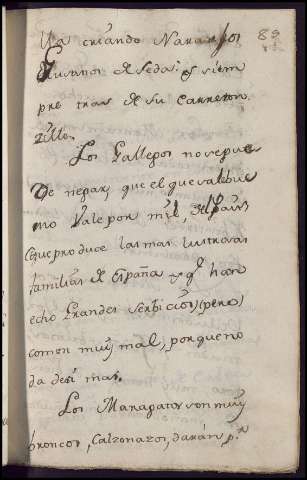 Ya criando Naranjos 89
Gusanos de seda: y siem
pre tras de su carreton
zillo.
Los Gallegos no se pue
de negar, que el que sale bue
no vale por mil, del Pais
(que produce las mas ilustradas
familias de España y q.e han
echo Grandes Serbicios) (pero)
comen muy mal, porque no
da de si mas.
Los Maragatos son muy
broncos, Calzonazos, darán p.r